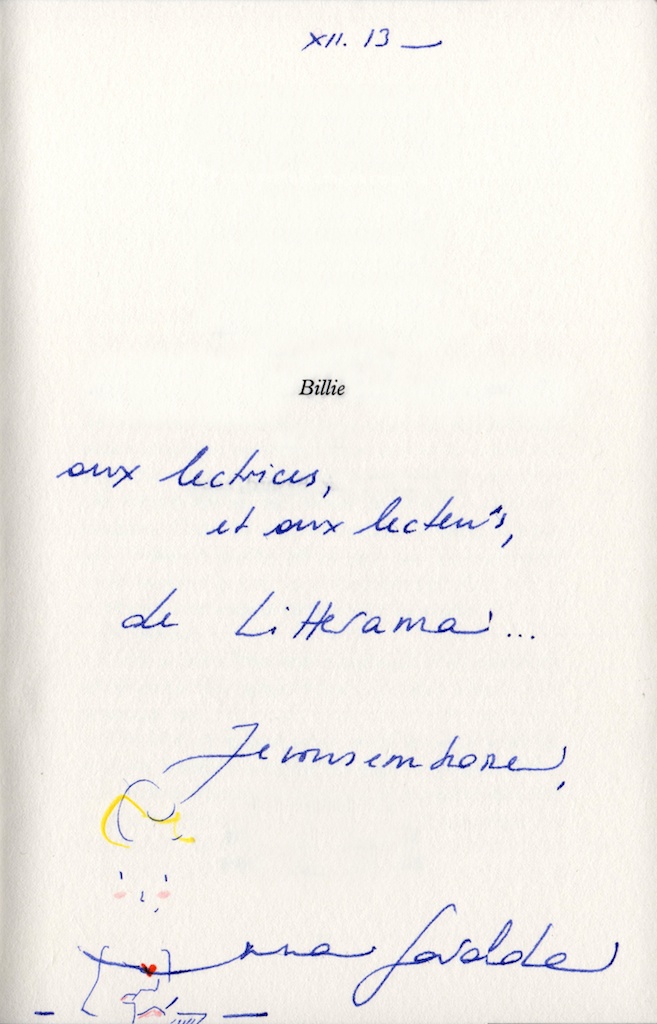 XII. 13
Billie
aux lectrices,
et aux lecteurs,
de Litterama...
Je vous embrasse,
Anna Gavalda